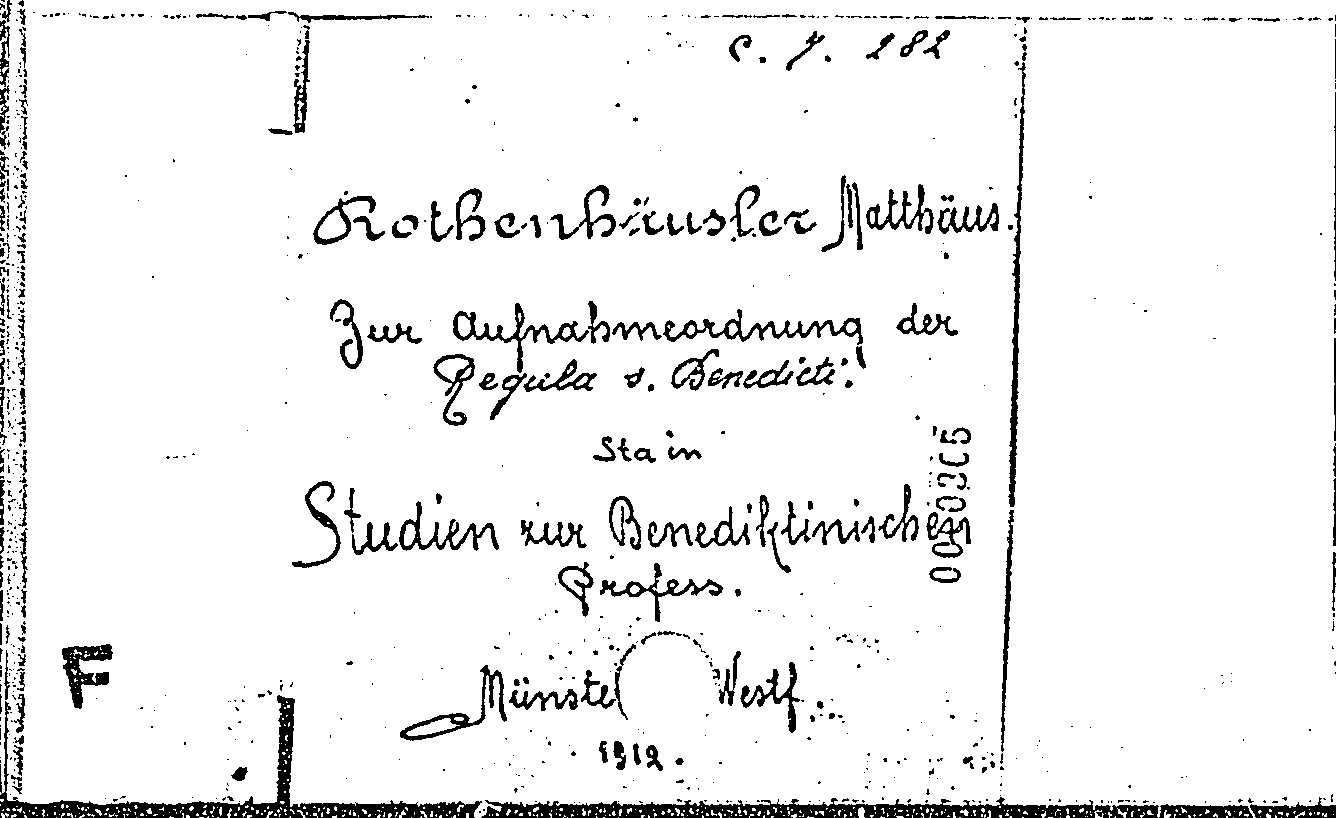 C. J. 282
Rothenhäusler Matthäus.
Zur Aufnahmeordnung der
Regula s. Benedicti.
Sta in
Studien zur Benediktinischen
Profess.
Münste Westf.
1912.
F